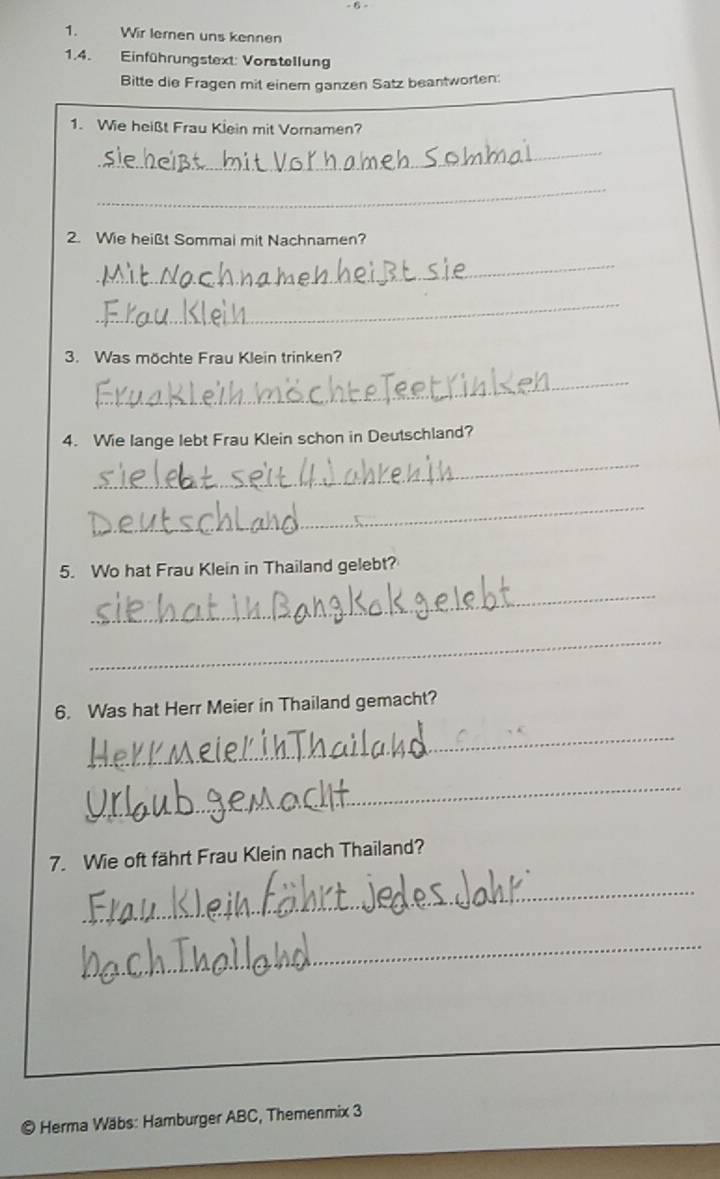 - 6 -
1. Wir lernen uns kennen
1.4. Einführungstext: Vorstellung
Bitte die Fragen mit einem ganzen Satz beantworten:
1. Wie heißt Frau Klein mit Vornamen?
sie heißt mit Vornamen Sommai
2. Wie heißt Sommai mit Nachnamen?
Mit Nachnamen heißt sie
Frau Klein
3. Was möchte Frau Klein trinken?
Frua Klein möchte Tee trinken
4. Wie lange lebt Frau Klein schon in Deutschland?
sie lebt seit 4 Jahren in
Deutschland
5. Wo hat Frau Klein in Thailand gelebt?
sie hat in Bangkok gelebt
6. Was hat Herr Meier in Thailand gemacht?
Herr Meier in Thailand
Urlaub gemacht
7. Wie oft fährt Frau Klein nach Thailand?
Frau Klein fährt jedes Jahr
nach Thailand
© Herma Wäbs: Hamburger ABC, Themenmix 3